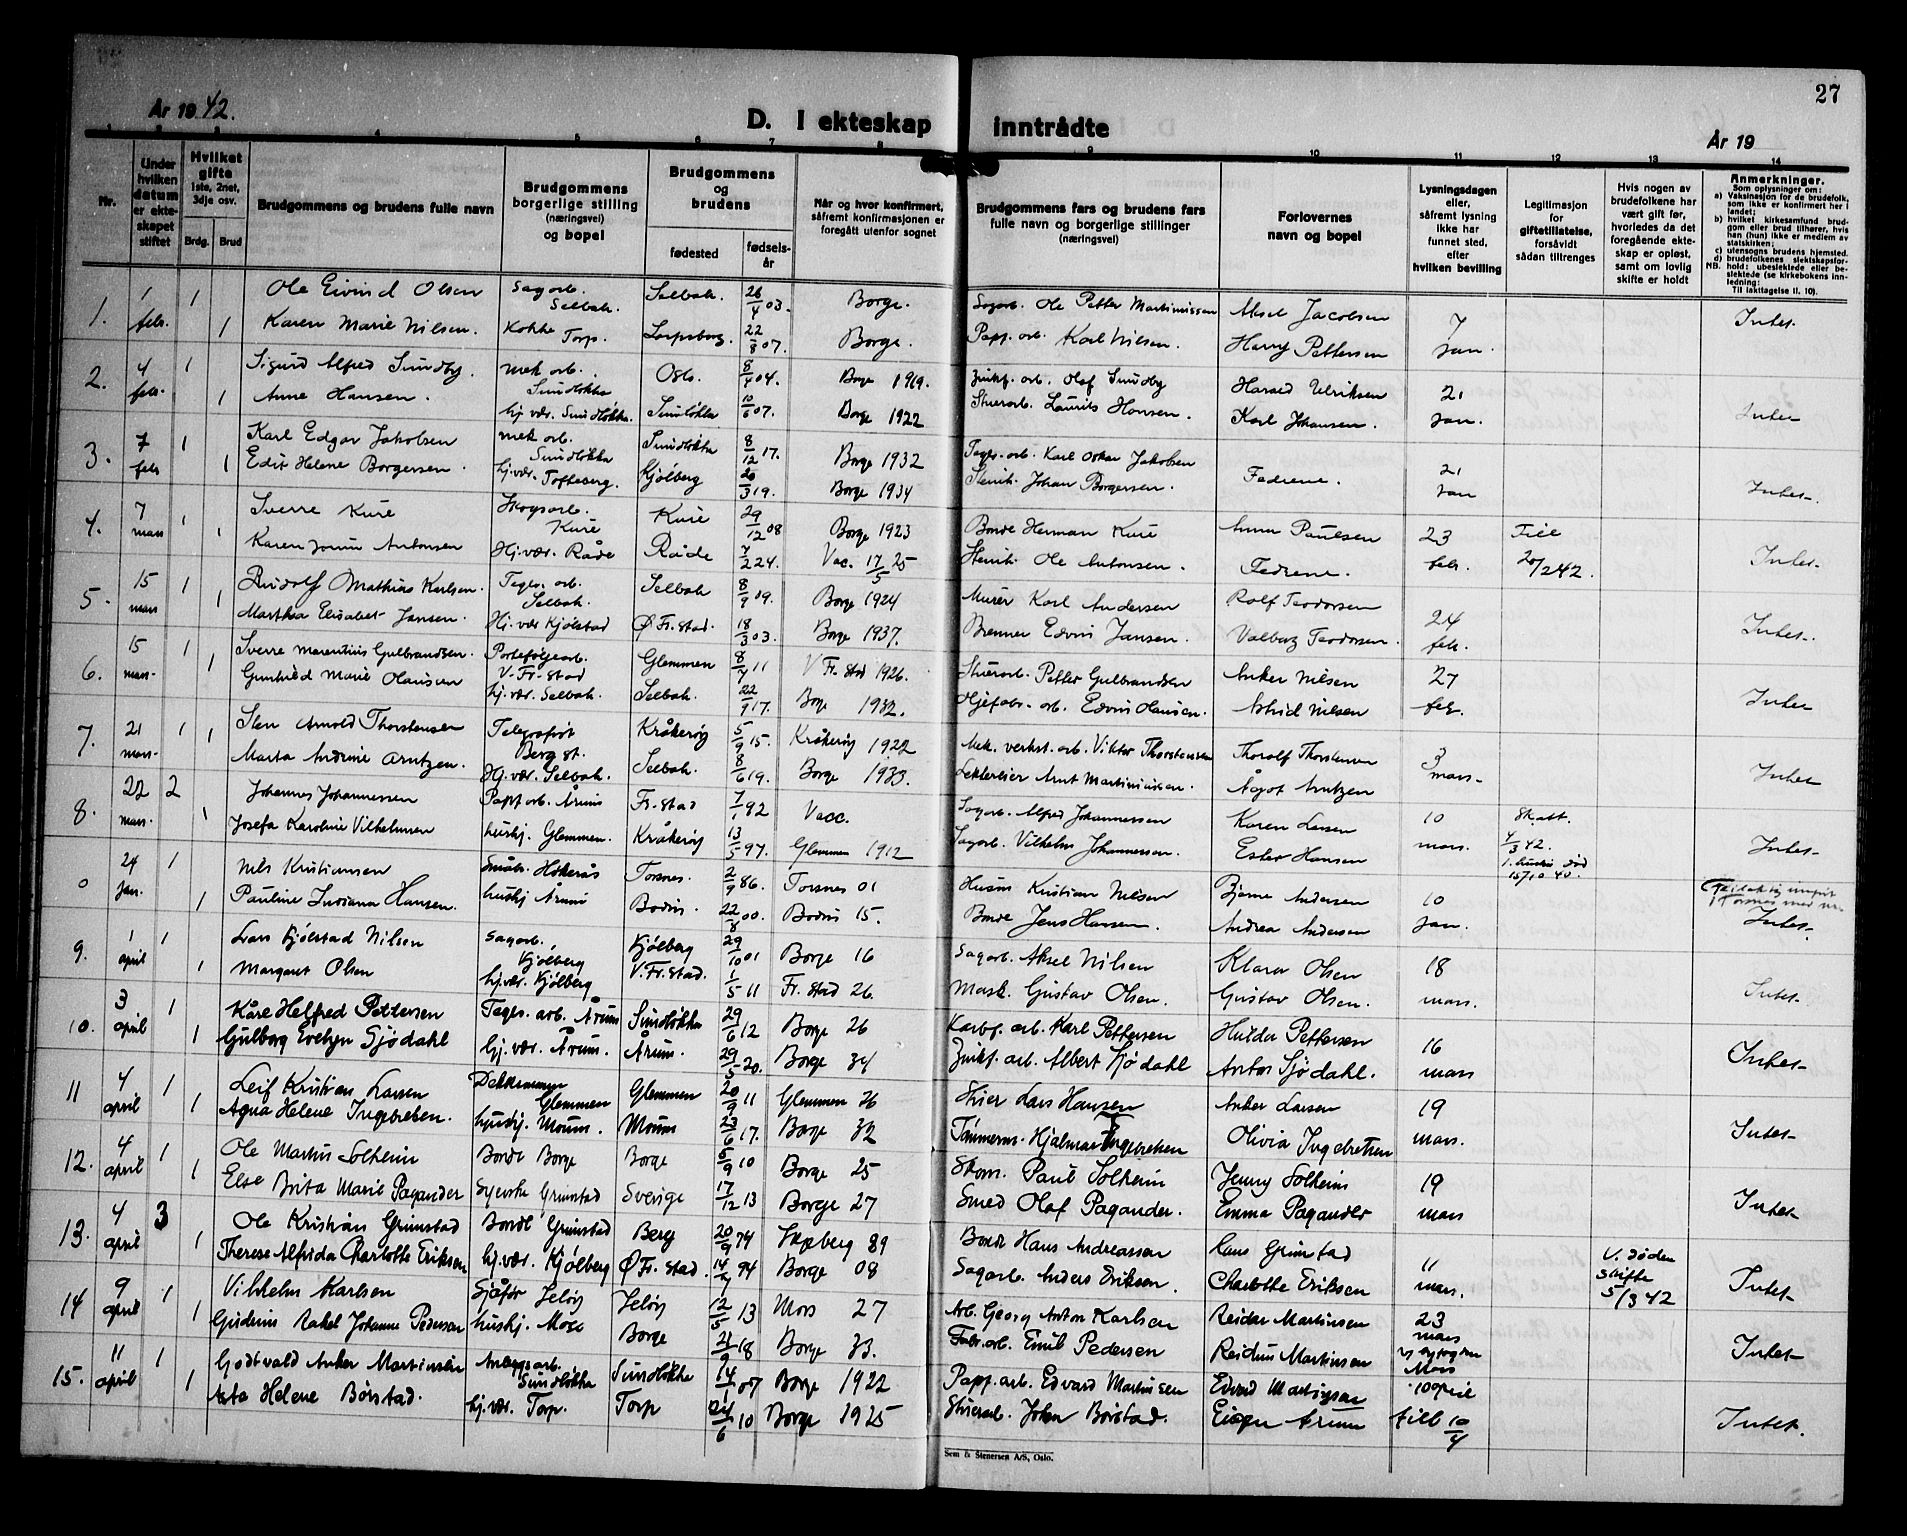 27
År 1942.
D. I ekteskap inntrådte
År 19
1 2 3 4 5 6 7 8 9 10 11 12 13 14
Nr.
Under hvilken datum er ekteskapet stiftet
Hvilket gifte 1ste, 2net, 3dje osv.
Brdg. Brud
Brudgommens og brudens fulle navn
Brudgommens borgerlige stilling (næringsvei) og bopel
Brudgommens og brudens
fødested
fødselsår
Når og hvor konfirmert, såfremt konfirmasjonen er foregått utenfor sognet
Brudgommens fars og brudens fars fulle navn og borgerlige stillinger (næringsvei)
Forlovernes navn og bopel
Lysningsdagen eller, såfremt lysning ikke har funnet sted, efter hvilken bevilling
Legitimasjon for giftetillatelse, forsåvidt sådan tiltrenges
Hvis nogen av brudefolkene har vært gift før, hvorledes da det foregående ekteskap er opløst, samt om lovlig skifte er holdt
Anmerkninger.
Som oplysninger om:
a) Vaksinasjon for de brudefolk, som ikke er konfirmert her i landet;
b) hvilket kirkesamfund brudgom eller brud tilhører, hvis han (hun) ikke er medlem av statskirken;
c) utensogns brudens hjemsted.
d) brudefolkenes slektskapsforhold: ubeslektede eller beslektede (se kirkebokens innledning:
NB. Til iakttagelse II. 10).
1. 1 febr. 1 Ole Eivind Olsen Sagarb. Selbak. Selbak. 26/4 03. Borge. Sagarb. Ole Petter Martiniussen Aksel Jacobsen 7 jan. Intet.
1 Karen Marie Nilsen. Kokke Torp. Sarpsborg. 22/8 07. Borge. Papp. arb. Karl Nilsen. Harry Pettersen
2. 4 febr. 1 Sigurd Alfred Sundby. Mek arb. Sundløkka Oslo. 8/4 04. Borge 1919. Zinkf. arb. Olaf Sundby Harald Ulriksen 21 jan. Intet
1 Anne Hansen. hj. vær. Sundløkka. Sundløkka 10/6 07. Borge 1922 Stuerarb. Laurits Hansen. Karl Johansen.
3. 7 febr 1 Karl Edgar Jakobsen mek arb. Sundløkka Sundløkka 8/12 17. Borge 1932 Tegls. arb. Karl Oskar Jakobsen Fedrene. 21 jan Intet.
1 Edit Helene Borgersen. hj. vær. Tofteberg. Kjølberg 20/3 19. Borge 1934 Stenh. Johan Borgersen.
4. 7 mars 1 Sverre Kure Skogsarb. Kure Kure 29/12 08 Borge 1923 Bonde Herman Kure Anna Paulsen 23 febr. 20/2 42. Intet.
1 Karen Antonsen Hj. vær. Råde Råde 7/2 24. Vac. 17/5 25 Stenh. Ole Antonsen. Fedrene.
5. 15 mars 1 Rudolf Mathias Karlsen. Tegls. arb. Selbak. Selbak 8/9 09. Borge 1924 Murer Karl Andersen Rolf Teodorsen 24 febr. Intet.
1 Martha Elisabet Jansen. Hj. vær Kjølstad Ø Fr. stad. 18/3 03. Borge 1937. Brenner Edvin Jansen. Valborg Teodorsen.
6. 15 mars 1 Sverre Marentius Gulbrandsen. Porteføljearb. V. Fr. stad Glemmen 8/4 11 V Fr. stad 1926. Stuerarb. Petter Gulbrandsen Anker Nilsen 27 febr. Intet
1 Gunhild Marie Hansen hj. vær. Selbak. Selbak. 22/9 17. Borge 1932. Oljefabr. arb. Edvin Hansen. Astrid Nilsen
7. 21 mars. 1 Sten Arnold Thorstensen Telegrafist Berg st. Kråkerøy 5/9 15. Kråkerøy 1922 Mek. verkst. arb. Viktor Thorstensen Thoralf Thorstensen 3 mars. Intet
1 Marta Andrine Arntzen. Hj. vær. Selbak. Selbak. 8/6 19. Borge 1933. Lektereier Arnt Martiniussen. Ågot Arntzen
8. 22 mars. 2 Johannes Johannessen Papp arb. Årum Fr. stad 7/1 92 Vacc. Sagarb. Alfred Johannessen Karen Larsen 10 mars. Skatt. 4/3 42. 1. hustru død 15/10 40. Intet.
1 Josefa Karoline Vilhelmsen hushj. Glemmen. Kråkerøy 13/5 97. Glemmen 1912 Sagarb. Vilhelm Johannessen. Ester Hansen
0 24 jan. 1 Nils Kristiansen Småbr. Torsnes. 2/9 86. Torsnes 01 Husm Kristian Nilsen Bjarne Andersen 10 jan. Intet.
1 Pauline Indiana Hansen. hushj Årum Bodin. 22/8 00. Bodin 15. Bonde Jens Hansen. Andrea Andersen
9. 1 april 1 Lars Kjølstad Nilsen Sagarb. Kjølberg Kjølberg 29/10 01 Borge 16 Sagarb. Aksel Nilsen Klara Olsen 18 mars. Intet.
1 Margaret Olsen hj. vær. Kjølberg V. Fr. stad. 1/5 11 Fr. stad 26. Mask. Gustav Olsen. Gustav Olsen.
10. 3 april 1 Kåre Helfred Pettersen Tegls. arb. Årum Sundløkka 29/6 12 Borge 26 Karbf. arb. Karl Pettersen Hulda Pettersen 16 mars Intet
1 Gulborg Evelyn Sjødahl hj. vær. Årum. Årum. 29/5 20. Borge 34 Zinkf. arb. Albert Sjødahl Anton Sjødahl.
11 4 april 1 Leif Kristian Larsen Dekksmann Glemmen Glemmen 20/9 11 Glemmen 26 Stuer Lars Hansen Anker Larsen 19 mars. Intet
1 Agna Helene Ingebretsen. hushj. Moum. Moum 23/6 17. Borge 32 Tømmerm. Hjalmar Ingebretsen Olivia Ingebretsen
12. 4 april 1 Ole Martin Solheim Bonde Borge Borge 5/9 10 Borge 25 Skom. Paul Solheim Jenny Solheim 19 mars Intet
1 Else Brita Marie Pagander Syerske Grimstad Sverige 17/12 13 Borge 27 Smed Olaf Pagander. Emma Pagander
13. 4 april 3 Ole Kristian Grimstad Bonde Grimstad Berg 20/9 74 Skjeberg 89 Bonde Hans Andreassen Hans Grimstad 11 mars. V. døden skifte 5/3 42 Intet
1 Therese Alfrida Charlotte Eriksen hj. vær. Kjølberg Ø Fr. stad. 14/4 94 Borge 08 Sagarb. Anders Eriksen. Charlotte Eriksen
14 9 april 1 Vilhelm Karlsen Sjåfør Jeløy Jeløy 12/5 13 Moss 27 Arb. Georg Anton Karlsen Reidar Martinsen 23 mars Moss Intet
1 Gudrun Rakel Johanne Pedersen hushj. Moss Borge 21/9 18 Borge 33. Fabr. arb. Emil Pedersen Reidun Martinsen
15. 11 april 1 Godtvald Anker Martinsen Anleggsarb. Sundløkka Sundløkka 14/1 07 Borge 1922 Papp. arb. Edvard Martinsen Edvard Martinsen Intet.
1 Asta Helene Børstad. hj. vær. Torp. Torp 24/6 10 Borge 1925 Stuerarb. Johan Børstad. Årum 10/4
Sem & Stenersen A/S, Oslo.